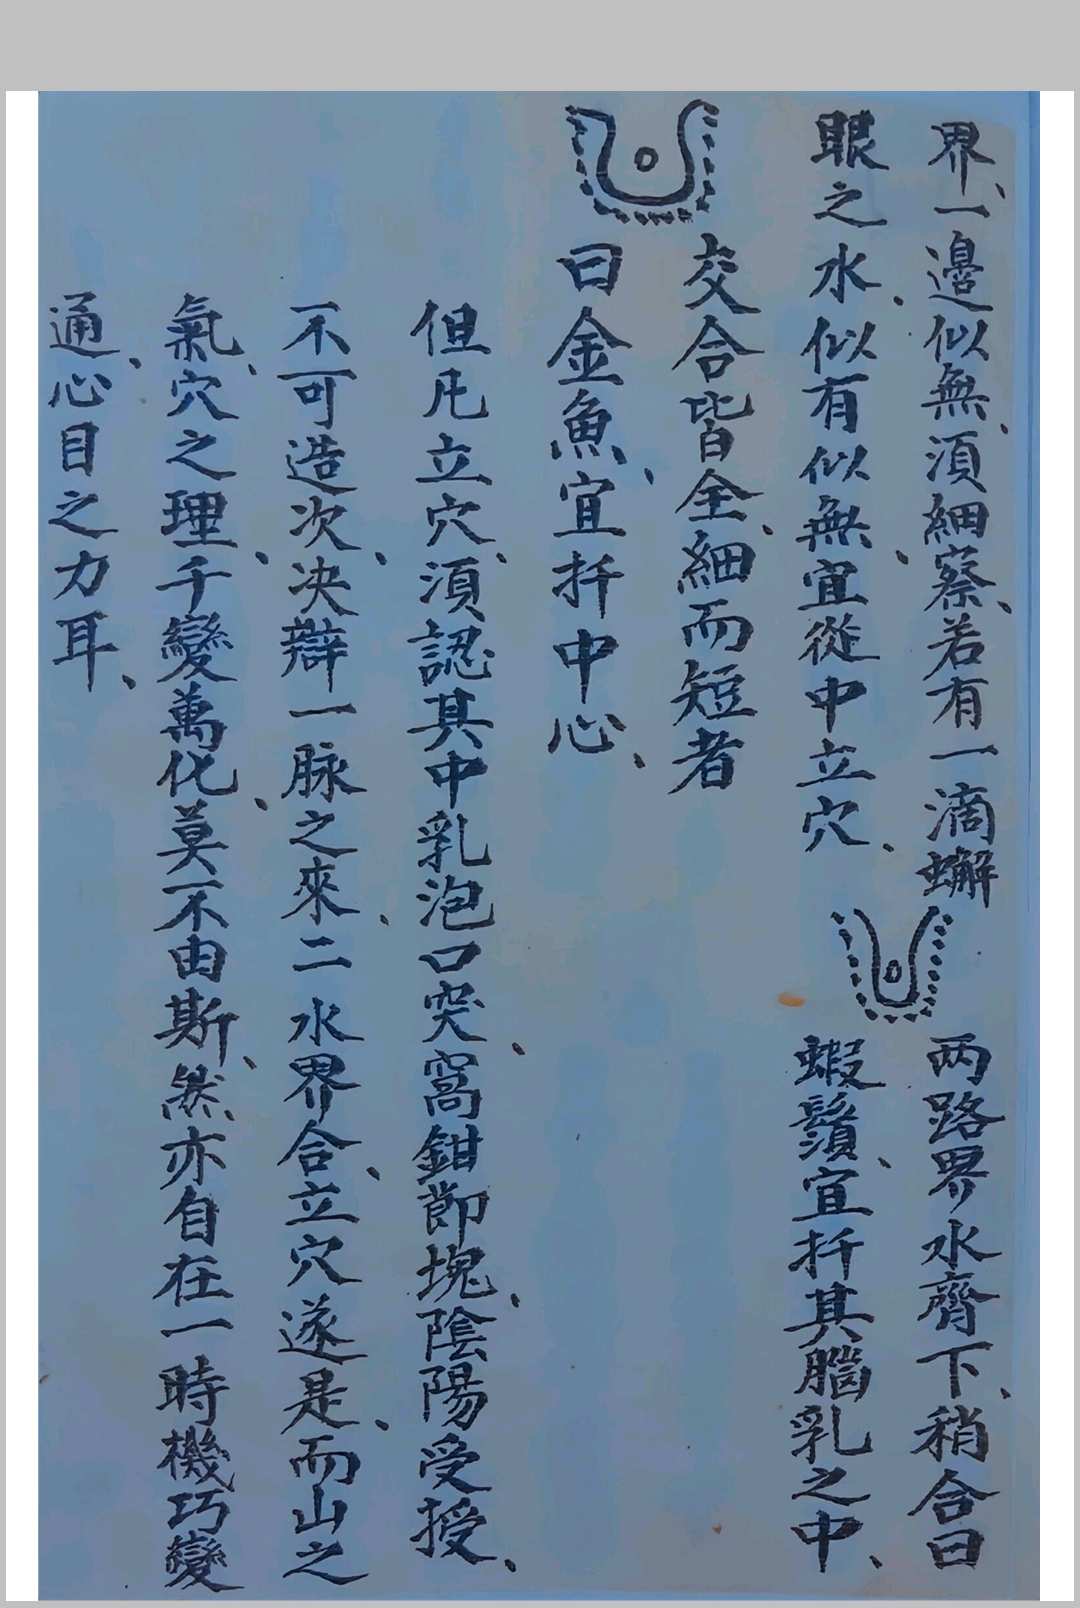 界、一邊似無、須細察、若有一滴蠏
眼之水、似有似無、宜從中立穴、
两路界水齊下、稍合曰
蝦鬚、宜扦其腦乳之中、
交合皆全、細而短者
曰金魚、宜扦中心、
但凡立穴、須認其中乳泡口突、窩鉗節塊、陰陽受授、
不可造次、决辯一脉之來、二水界合、立穴遂是、而山之
氣、穴之理、千變萬化、莫不由斯、然亦自在一時機巧變
通、心目之力耳、